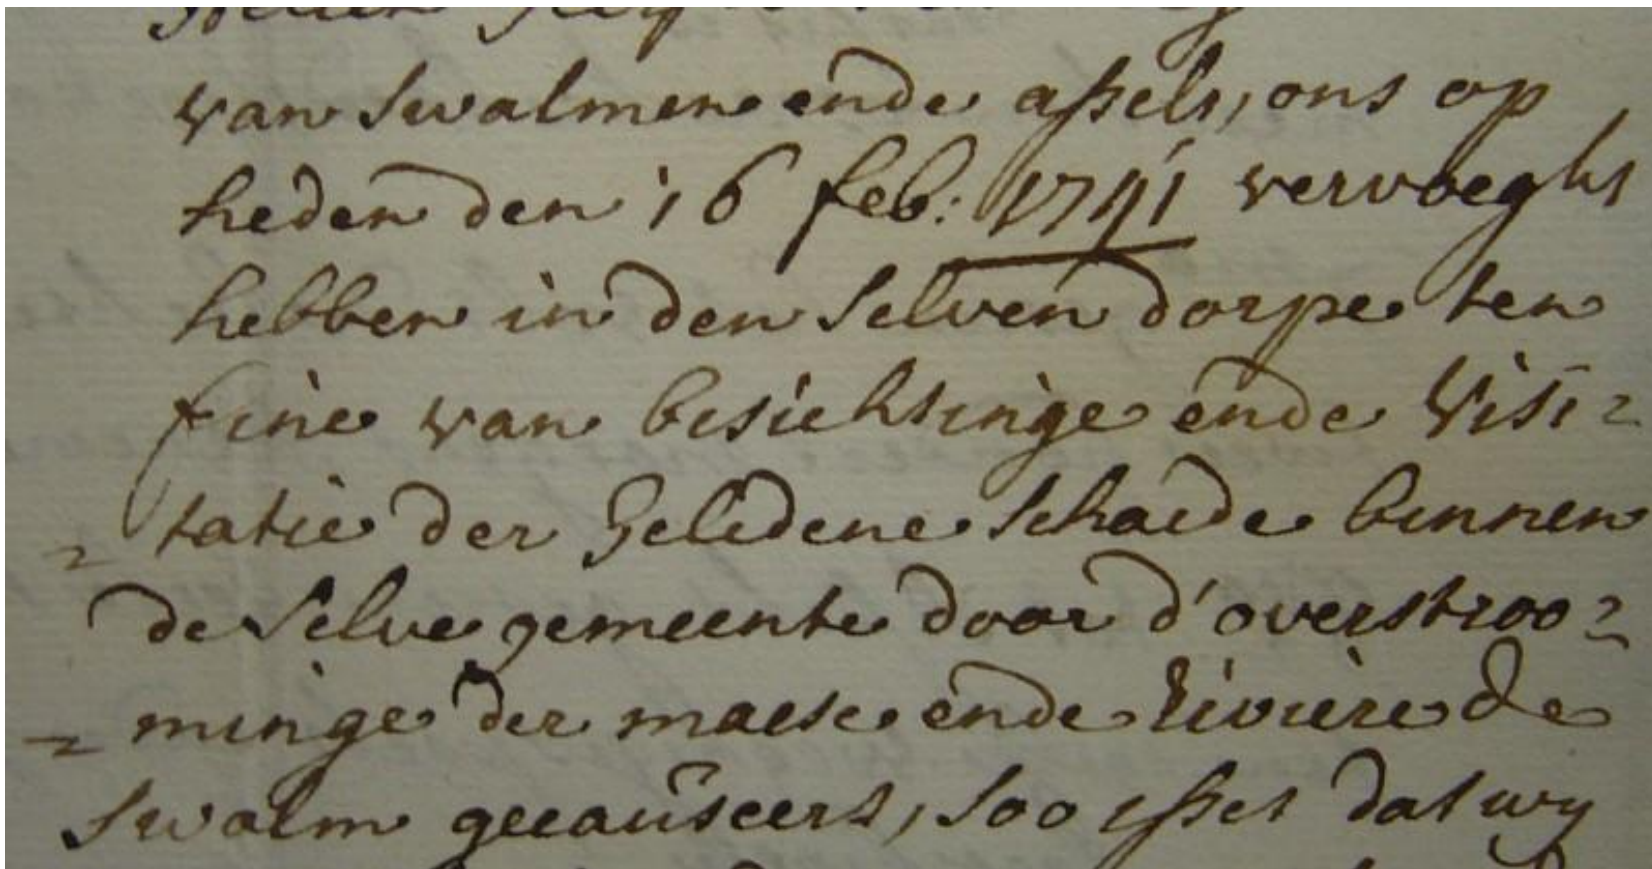 van Swalmen ende assels, ons op
heden den 16 feb: 1741 vervoeght
hebben in den selven dorpe ten
fine van besichtinge ende visi=
=tatie der geledene schaede binnen
de selve gemeente door d'overstroo=
=minge der maese ende riviere de
Swalm geeauseert, soo isset dat wy